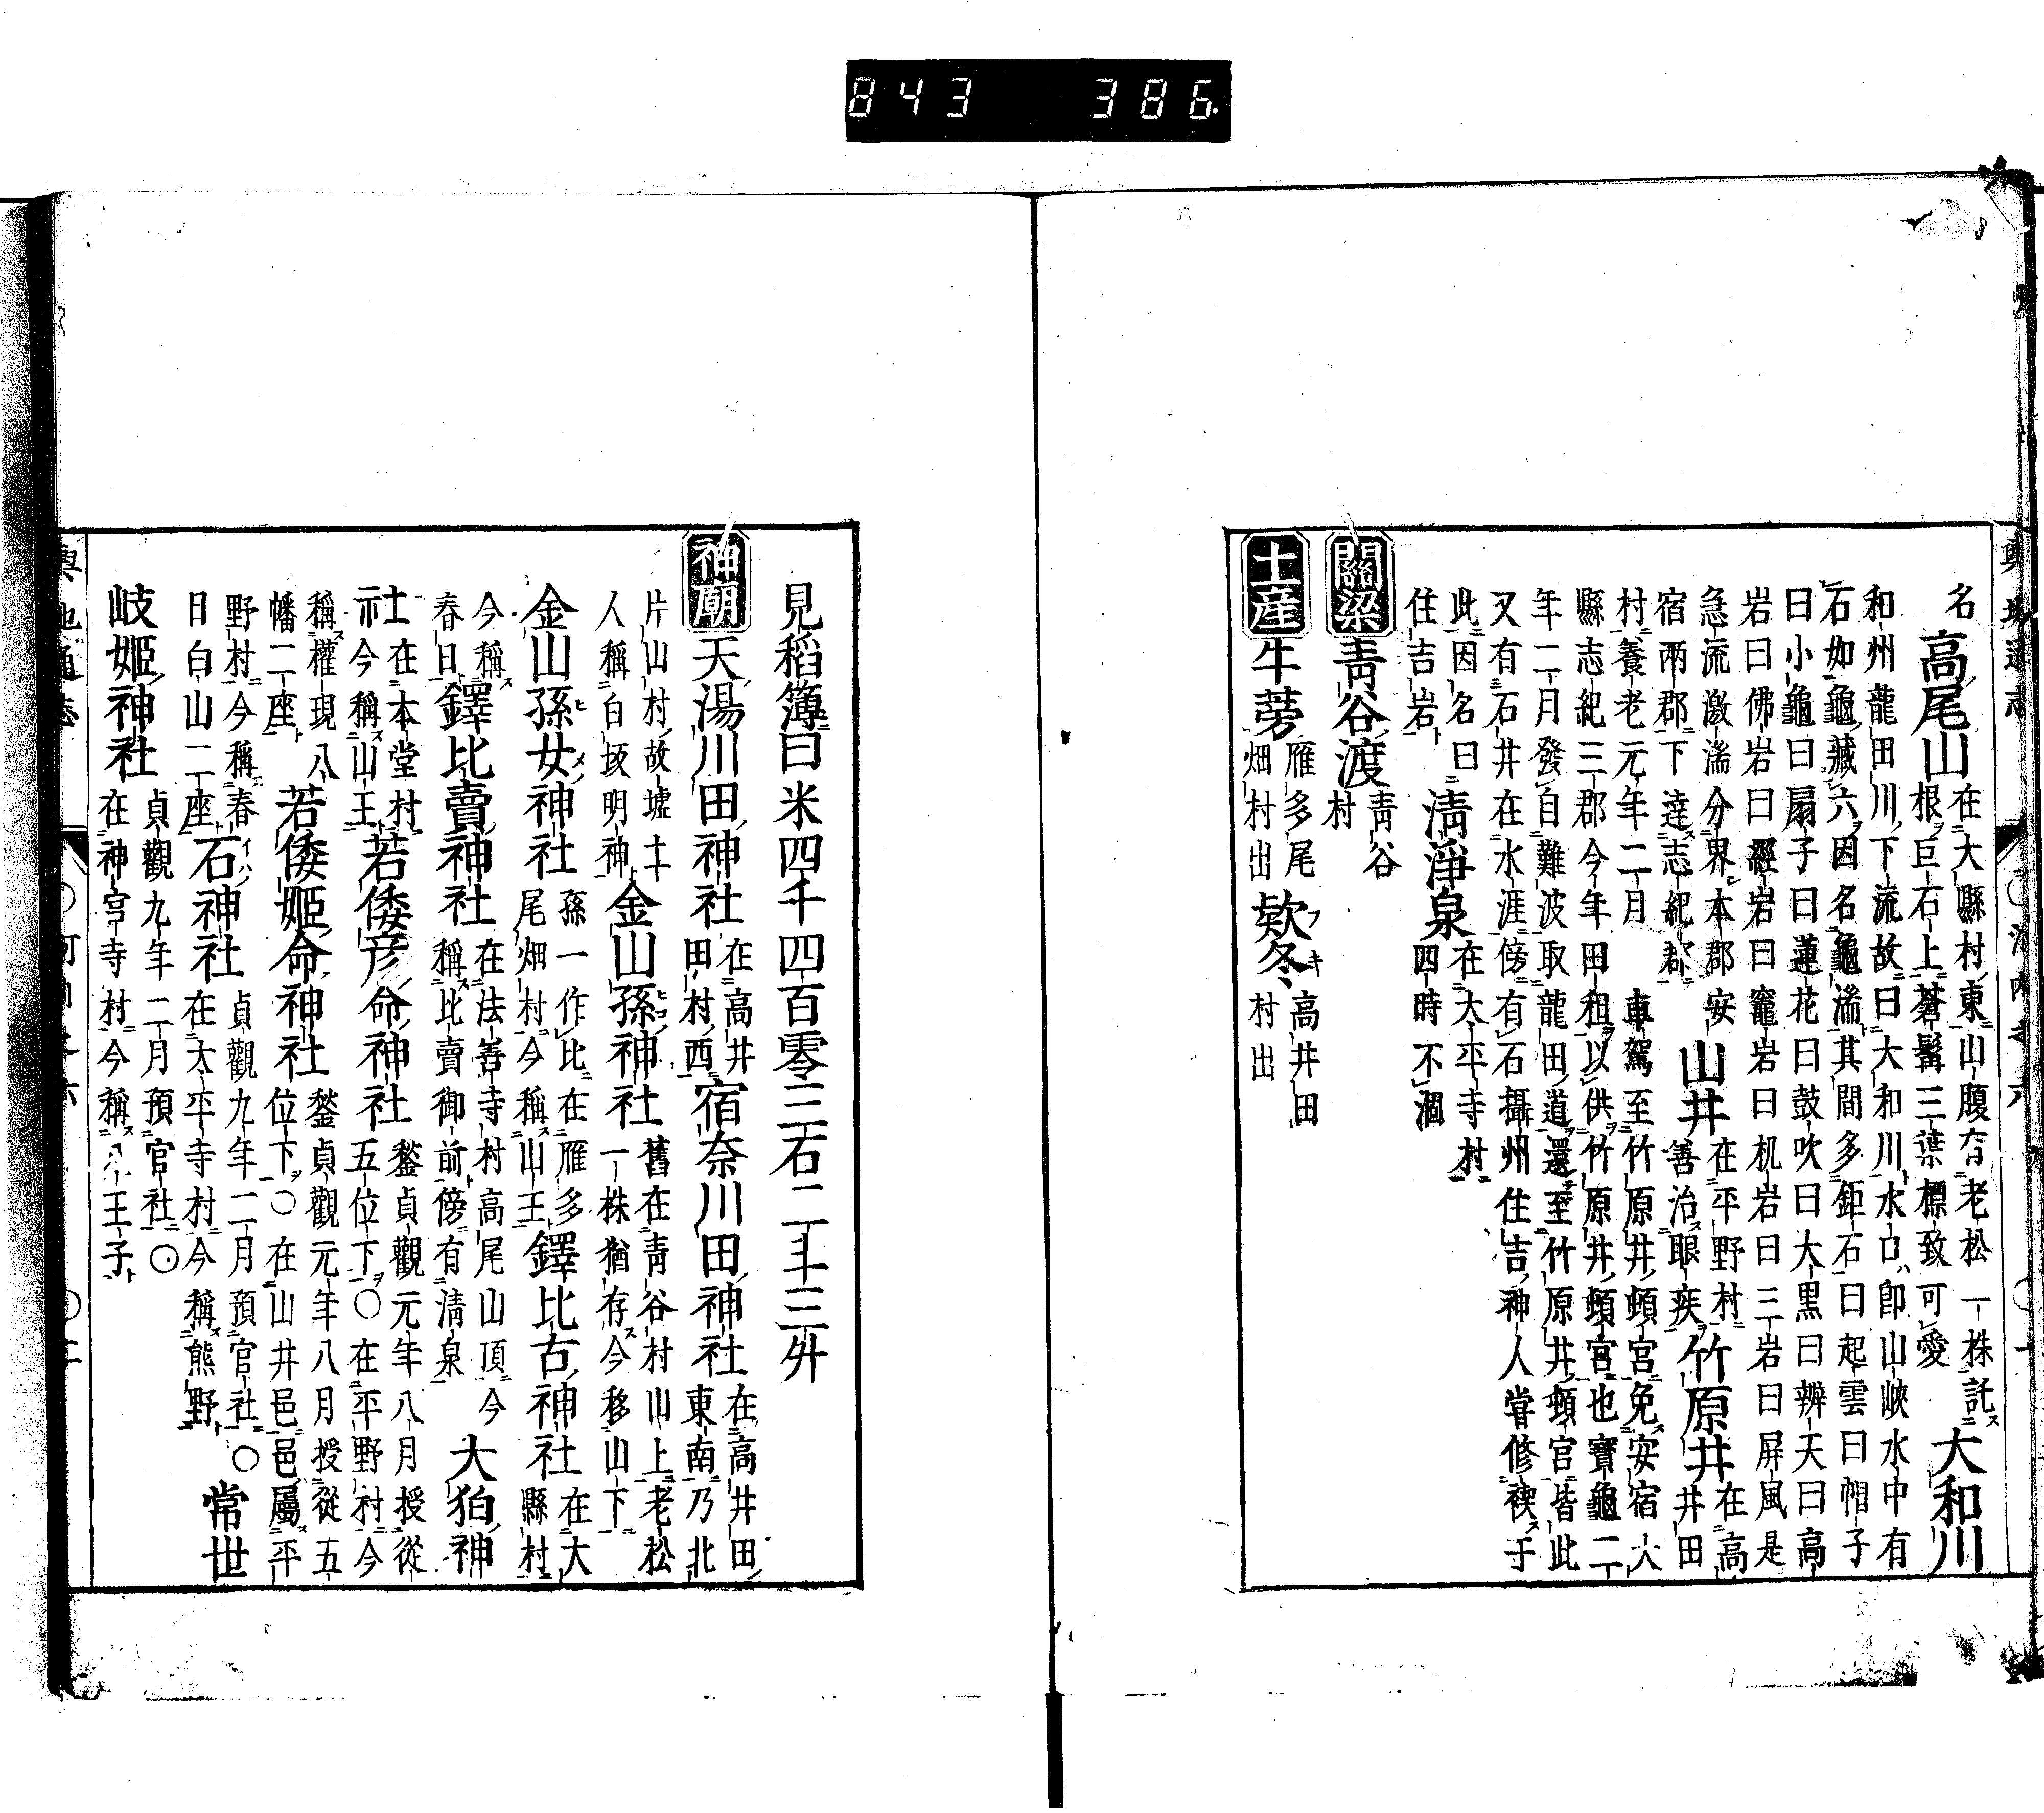 輿地通志
名
高尾山
在大縣村東山腹有老松一株託
根巨石上蒼髯三葉標致可愛
大和川
和州龍田川下流故曰大和川水口即山峽水中有
石如龜藏六因名龜湍其間多鉅石曰起雲曰帽子
曰小龜曰扇子曰蓮花曰鼓吹曰大黒曰辨天曰高
岩曰佛岩曰經岩曰竈岩曰机岩曰三岩曰屏風是
急流激湍分界本郡安
宿兩郡下達志紀郡
山井
在平野村
善治眼疾
竹原井
在高
井田
村養老元年二月車駕至竹原井頓宮免安宿大
縣志紀三郡今年田租以供竹原井頓宮也寶龜二
年二月發自難波取龍田道還至竹原井頓宮皆此
又有石井在水涯傍有石攝州住吉神人甞修禊于
此因名曰
住吉岩
清淨泉
在大平寺村
四時不涸
關梁
青谷渡
青谷
村
土産
牛蒡
雁多尾
畑村出
欵冬
高井田
村出
見稻簿曰米四千四百零三石二斗三升
神廟
天湯川田神社
在高井
田村西
宿奈川田神社
在高井田
東南乃北
片山村故墟土
人稱白坂明神
金山孫神社
舊在青谷村山上老松
一株猶存今移山下
金山孫女神社
孫一作比在雁多
尾畑村今稱山王
鐸比古神社
在大
縣村
今稱
春日
鐸比賣神社
在法善寺村高尾山頂今
稱比賣御前傍有清泉
大狛神
社
在本堂村
今稱山王
若倭彦命神社
鍪貞觀元年八月授從
五位下〇在平野村今
稱權現八
幡二座
若倭姫命神社
鍪貞觀元年八月授從五
位下〇在山井邑邑屬平
野村今稱春
日白山二座
石神社
貞觀九年二月預官社〇
在太平寺村今稱熊野
常世
岐姫神社
貞觀九年二月預官社〇
在神宮寺村今稱八王子
843 386